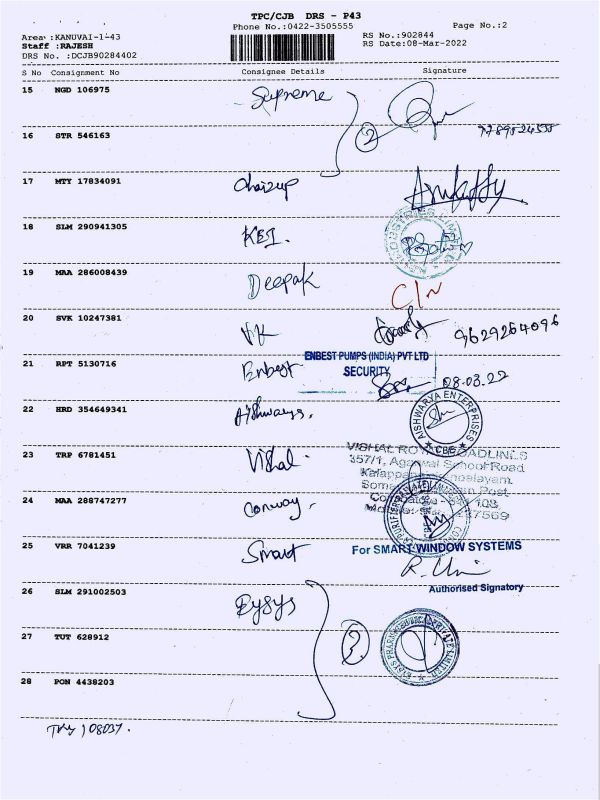 TPC/CJB DRS - P43
Phone No.:0422-3505555
Page No.:2
Area :KANUVAI-1-43
RS No.:902844
Staff :RAJESH
RS Date:08-Mar-2022
DRS No. :DCJB90284402
S No Consignment No Consignee Details Signature
15 NGD 106975 Supreme
16 STR 546163 2
17 MTY 17834091
18 SLM 290941305 KEI.
19 MAA 286008439 Deepak
20 SVK 10247381 VK 9629264096
ENBEST PUMPS (INDIA) PVT LTD
21 RPT 5130716 Enbest SECURITY
08.03.22
22 HRD 354649341 Aishwarya.
AISHWARYA ENTERPRISES CBE
23 TRP 6781451 Vishal
VISHAL ROADLINES
357/1, Agarwal School Road
24 MAA 288747277 Conway.
25 VRR 7041239 Smart
For SMART WINDOW SYSTEMS
Authorised Signatory
26 SLM 291002503
27 TUT 628912 3
28 PON 4438203
108037.